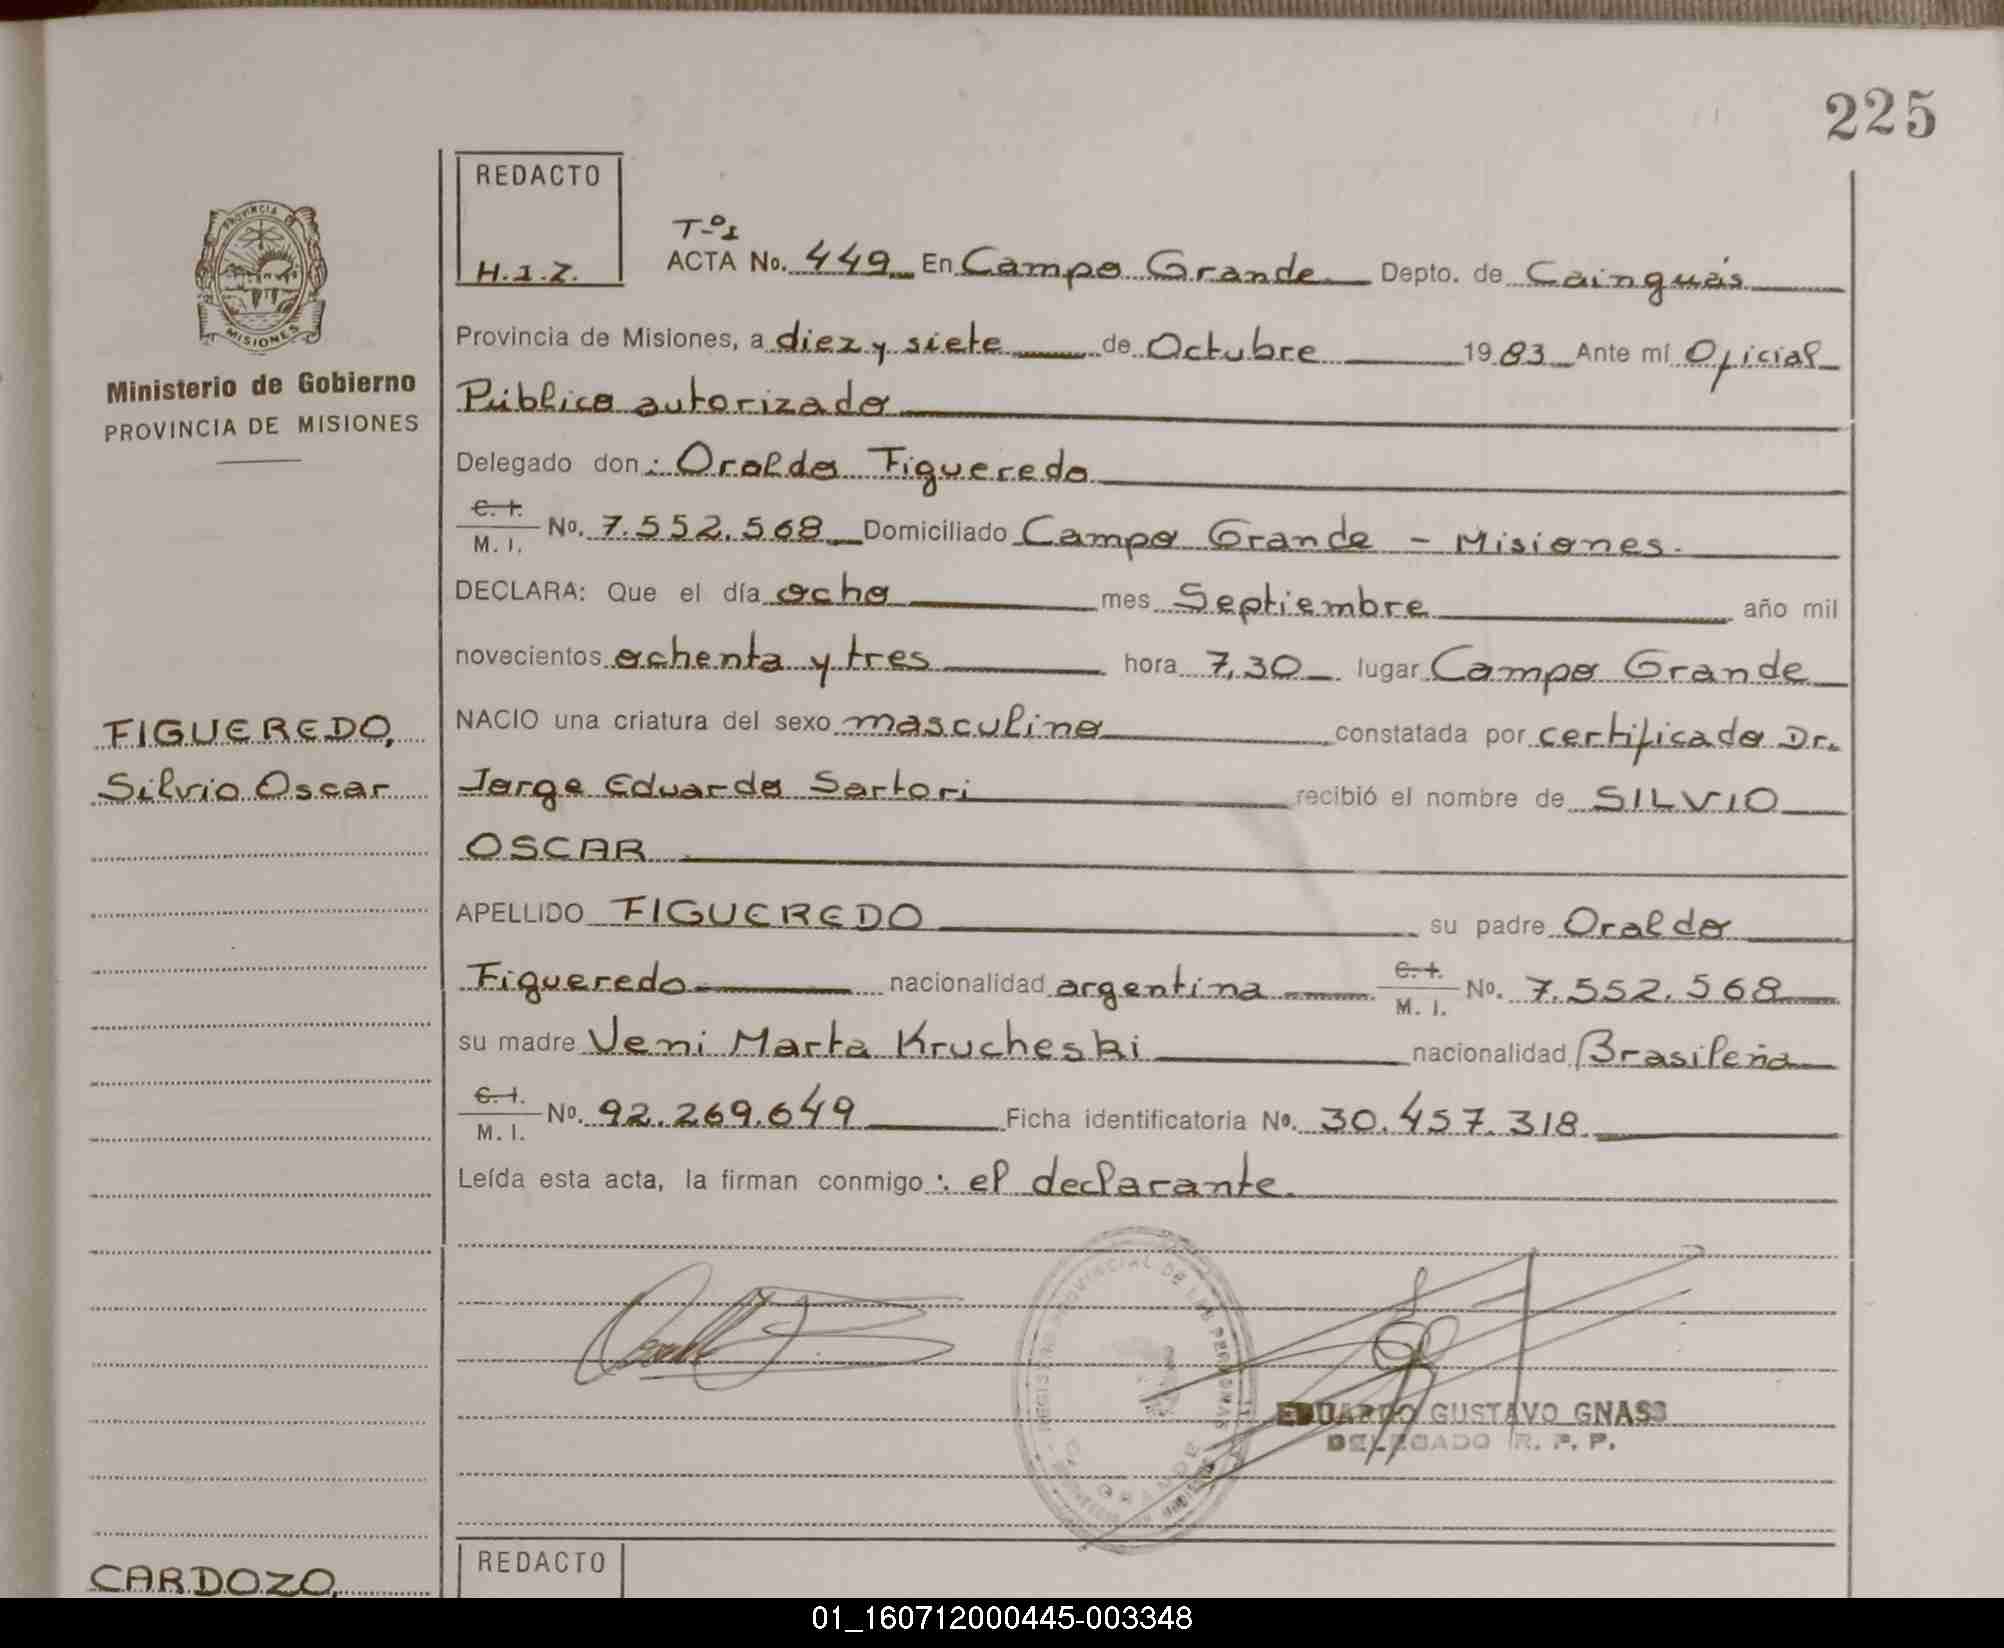 225
REDACTO
H.I.Z.
PROVINCIA DE
MISIONES
Ministerio de Gobierno
PROVINCIA DE MISIONES
FIGUEREDO,
Silvio Oscar
T-º1
ACTA No. 449 En Campo Grande Depto. de Cainguás
Provincia de Misiones, a diez y siete de Octubre 1983 Ante mí Oficial
Público autorizado
Delegado don: Oraldo Figueredo
C. I. M. I. No. 7.552.568 Domiciliado Campo Grande - Misiones.
DECLARA: Que el día ocho mes Septiembre año mil
novecientos ochenta y tres hora 7,30 lugar Campo Grande
NACIO una criatura del sexo masculino constatada por certificado Dr.
Jorge Eduardo Sartori recibió el nombre de SILVIO
OSCAR
APELLIDO FIGUEREDO su padre Oraldo
Figueredo nacionalidad argentina C. I. M. I. No. 7.552.568
su madre Veni Marta Krucheski nacionalidad Brasileña
C. I. M. I. No. 92.269.649 Ficha identificatoria No. 30.457.318.
Leída esta acta, la firman conmigo: el declarante.
REGISTRO PROVINCIAL DE LAS PERSONAS
GRANDE
EDUARDO GUSTAVO GNASS
DELEGADO R. P. P.
REDACTO
CARDOZO,
01_160712000445-003348